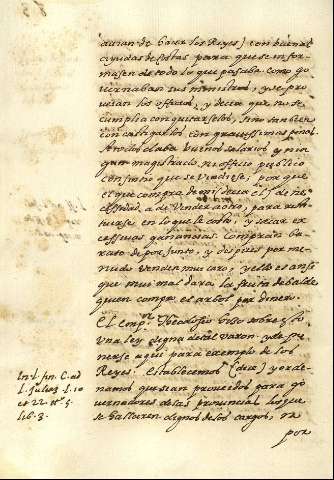 auian de hacer los Reyes) con buenas
ayudas de costas para que se infor-
masen de todo lo que pasaba como go
vernaban sus ministros, y se pro
veian los officios, y decia que no se
cumplia con quitarselos, sino tambien
con castigarlos con grauissimas penas.
A todos daba buenos salarios y nin
gun magistrado, ni officio publico
consintio que se vendiese; porque
el que compra
cessidad, a de vender a otro, para resti
tuirse en lo que le costo, y sacar ex
cessiuas ganancias. Comprada ba
rato de por junto, y despues por me
nudo venden muy caro, y ello es ansi
que muy mal dara la fruta de balde
quien compra el arbol por dinero.
El emp.or Theodosio hizo sobre esto
una ley digna de tal varon y de po
nerse aqui para exemplo de los
Reyes. Establecemos (dice) y orde
namos que sean proueidos para go
uernadores de las prouincias los que
se hallaren dignos de los cargos, no
por
In l. fin. C. ad
l. Juliam
et 22
lib. 3.